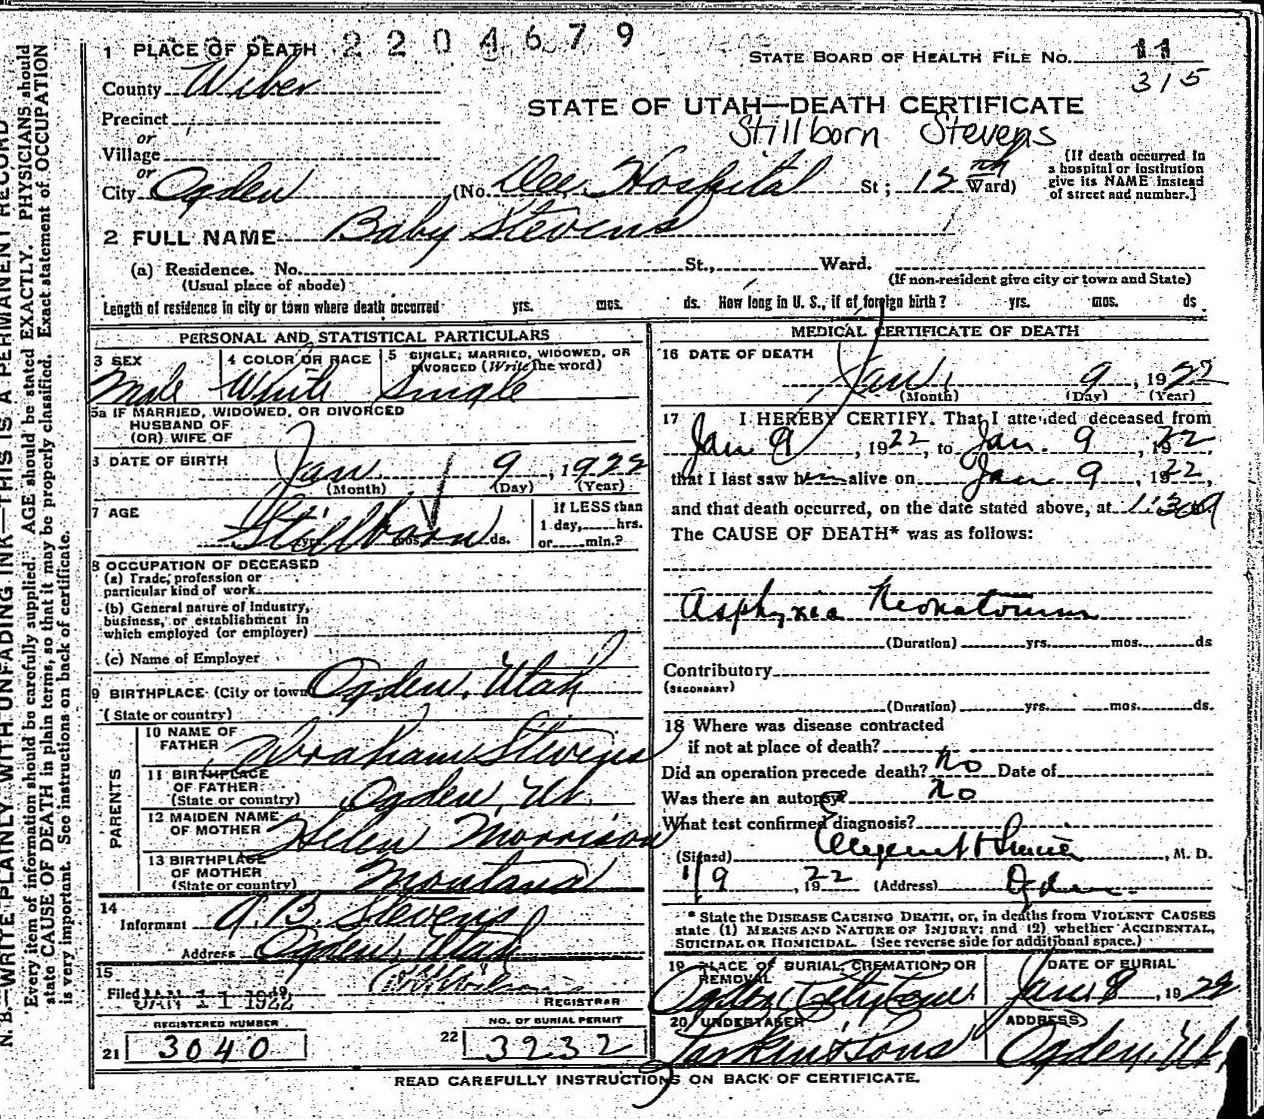 2204679
1 PLACE OF DEATH
STATE BOARD OF HEALTH FILE NO. 11
315
County Wiber
STATE OF UTAH—DEATH CERTIFICATE
Precinct
Stillborn Stevens
or
Village
or
City Ogden (No. Dee Hospital St; 12th Ward)
(If death occurred in
a hospital or institution
give its NAME instead
of street and number.)
2 FULL NAME Baby Stevens
(a) Residence. No. St., Ward.
(Usual place of abode) (If non-resident give city or town and State)
Length of residence in city or town where death occurred yrs. mos. ds. How long in U. S., if of foreign birth? yrs. mos. ds
PERSONAL AND STATISTICAL PARTICULARS
3 SEX
Male
4 COLOR OR RACE
White
5 SINGLE, MARRIED, WIDOWED, OR
DIVORCED (Write the word)
Single
5a IF MARRIED, WIDOWED, OR DIVORCED
HUSBAND OF
(OR) WIFE OF
DATE OF BIRTH Jan. 9, 1922
(Month) (Day) (Year)
7 AGE
Stillborn
yrs. mos. ds.
If LESS than
1 day, hrs.
or min.?
8 OCCUPATION OF DECEASED
(a) Trade, profession or
particular kind of work
(b) General nature of Industry,
business, or establishment in
which employed (or employer)
(c) Name of Employer
9 BIRTHPLACE (City or town) Ogden, Utah
(State or country)
PARENTS
10 NAME OF
FATHER Abraham Stevens
11 BIRTHPLACE
OF FATHER
(State or country) Ogden, Ut.
12 MAIDEN NAME
OF MOTHER Helen Morrison
13 BIRTHPLACE
OF MOTHER
(State or country) Montana
14
Informant A. B. Stevens
Address Ogden, Utah
15
Filed JAN 11 1922
REGISTRAR
REGISTERED NUMBER
21 3040
NO. OF BURIAL PERMIT
22 3232
MEDICAL CERTIFICATE OF DEATH
16 DATE OF DEATH
Jan. 9, 1922
(Month) (Day) (Year)
17 I HEREBY CERTIFY. That I attended deceased from
Jan 9, 1922, to Jan. 9, 1922
that I last saw him alive on Jan 9, 1922,
and that death occurred, on the date stated above, at
The CAUSE OF DEATH* was as follows:
Asphyxia Neonatorum
(Duration) yrs. mos. ds
Contributory
(SECONDARY)
(Duration) yrs. mos. ds.
18 Where was disease contracted
if not at place of death?
Did an operation precede death? No Date of
Was there an autopsy? No
What test confirmed diagnosis?
(Signed) , M. D.
1/9, 1922 (Address) Ogden
* State the DISEASE CAUSING DEATH, or, in deaths from VIOLENT CAUSES
state (1) MEANS AND NATURE OF INJURY; and (2) whether ACCIDENTAL,
SUICIDAL OR HOMICIDAL. (See reverse side for additional space.)
19 PLACE OF BURIAL, CREMATION, OR
REMOVAL
Ogden City Cem.
DATE OF BURIAL
Jan. 8, 1922
20 UNDERTAKER
Larkin & Sons
ADDRESS
Ogden, Ut.
READ CAREFULLY INSTRUCTIONS ON BACK OF CERTIFICATE.
N. B.—WRITE PLAINLY WITH UNFADING INK—THIS IS A PERMANENT RECORD
Every item of information should be carefully supplied. AGE should be stated EXACTLY. PHYSICIANS should
state CAUSE OF DEATH in plain terms, so that it may be properly classified. Exact statement of OCCUPATION
is very important. See instructions on back of certificate.